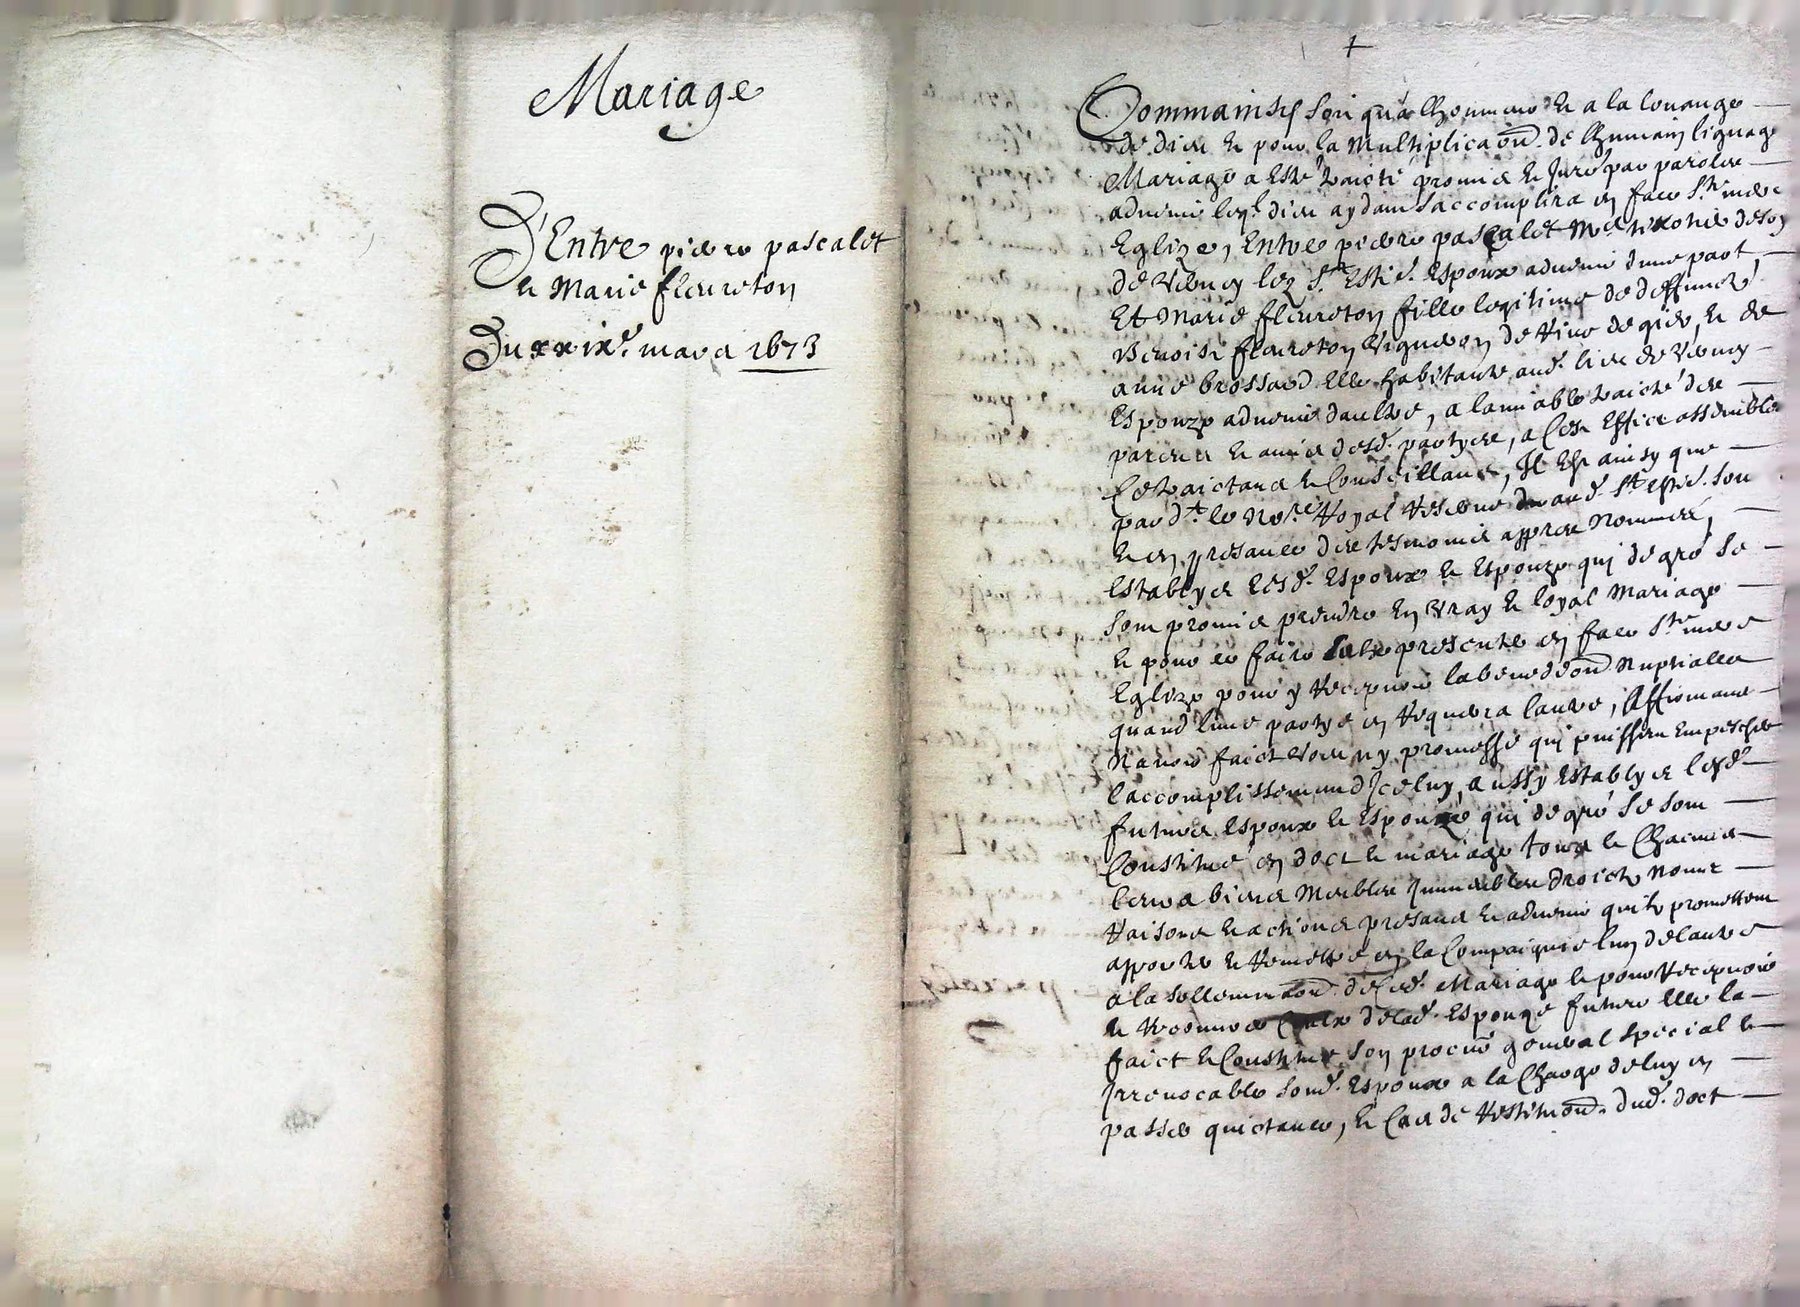 Mariage
D'Entre pierre pascalet
et Marie fleureton
Du xxixe. mars 1673
+
Comme ainsy soit qua lhonneur et a la louange
de dieu et pour la Multiplicaon. de lhumain lignage
Mariage a esté traicté promis et Juré par parolles
advenir lequel dieu aydant saccomplira en face Ste mere
Eglize, Entre pierre pascalet Me
de lez St. Esti. Espoux advenir dune part
Et Marie fleureton fille legitime de deffunct
Benoist fleureton Vigneron de Rive de gier, et de
anne brossard Elle habitante aud. lieu de
Espouze advenir daultre, a lamiable traicté des
parens et amis desd. partyes, a Cest Effect assemblés
Ce traictans et Conseillans, Il est ainsy que
pard.t le No.re Royal reservé aud. St Esti. son
et en presance des tesmoins appres Nommés,
Establys Lesd. Espoux et Espouze qui de gré se
sont promis prendre En Vray et loyal Mariage
et pour ce faire se presenter en face Ste mere
Eglize pour y Recepvoir la benedon Nuptialle
quand lune partye en Requerra lautre, Affirmans
Navoir faict Voeu ny promesse qui puissent Empescher
laccomplissement dIceluy, aussy Establys lesd.
futurs Espoux et Espouze qui de gré se sont
Constitué en doct et mariage tous et Chacuns
leurs biens Meubles Immeubles droicts Noms
Raisons et actions presans et advenir quils promettent
apporter et Remettre en la Compaignie lun de lautre
a la sollemnaon. de Ced. Mariage et pour Recepvoir
et Recouvrer Ceulx de lad. Espouze future Elle la
faict et Constitue son procur general special et
Irrevocable sond. Espoux a la Charge deluy en
passer quictance, et Cas de Restituon. dud. doct